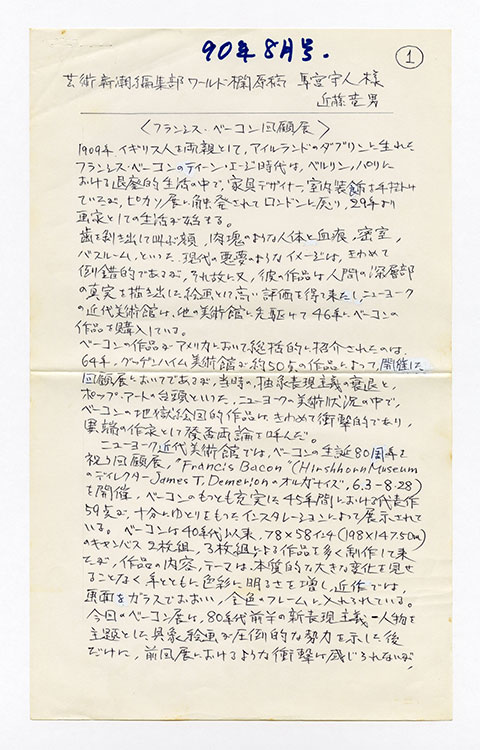 90年8月号.
①
芸術新潮編集部ワールド欄原稿 様
近藤竜男
〈フランシス・ベーコン回顧展〉
1909年イギリス人を両親として、アイルランドのダブリンに生れた
フランシス・ベーコンのティーン・エージ時代は、ベルリン、パリに
おける退廃的生活の中で、家具デザイナー、室内装飾を手掛け
ていたが、ピカソ展に触発されてロンドンに戻り、29年より
画家としての生活が始まる。
歯を剥き出して叫ぶ顔、肉塊のような人体と血痕、密室、
バスルーム、といった、現代の悪夢のようなイメージは、きわめて
倒錯的であるが、それ故に又、彼の作品は人間の深層部
の真実を描き出した絵画として高い評価を得て来たし、ニューヨーク
の近代美術館は、他の美術館に先駆けて46年にベーコンの
作品を購入している。
ベーコンの作品がアメリカにおいて総括的に紹介されたのは、
64年、グッゲンハイム美術館が約50点の作品によって、開催した
回顧展においてであるが、当時の、抽象表現主義の衰退と、
ポップ・アートの台頭といった、ニューヨークの美術状況の中で、
ベーコンの地獄絵図的作品は、きわめて衝撃的であり、
異端の作家として賛否両論を呼んだ。
ニューヨーク近代美術館では、ベーコンの生誕80周年を
祝う回顧展、"Francis Bacon"(Hirshhorn Museum
のディレクターJames T. Demetrionのオルガナイズ、6.3-8.28)
を開催、ベーコンのもっとも充実した45年間における代表作
59点が、十分にゆとりをもったインスタレーションによって展示されて
いる。ベーコンは40年代以来、78×58インチ(198×147.5cm)
のキャンバス2枚組、3枚組による作品を多く制作して来
たが、作品の内容、テーマは、本質的な大きな変化を見せ
ることなく年とともに色彩に明るさを増し、近作では、
画面をガラスでおおい、金色のフレームに入れられている。
今回のベーコン展は、80年代前半の新表現主義―人物を
主題とした具象絵画が圧倒的な勢力を示した後
だけに、前回展におけるような衝撃は感じられないが、